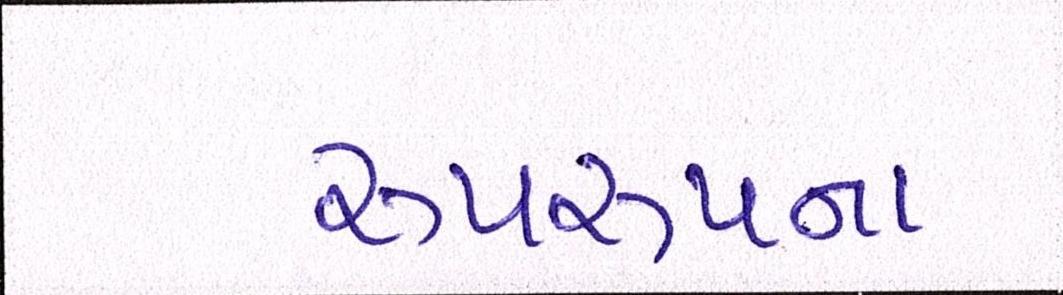 રુપરુપના